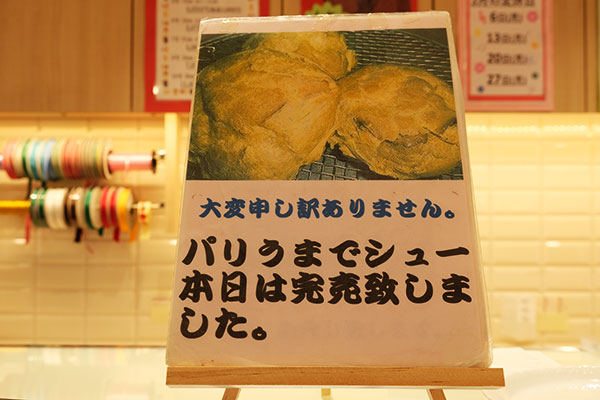 大変申し訳ありません。
パリうまでシュー
本日は完売致しま
した。
6日(月)
13日(月)
20日(月)
27日(月)